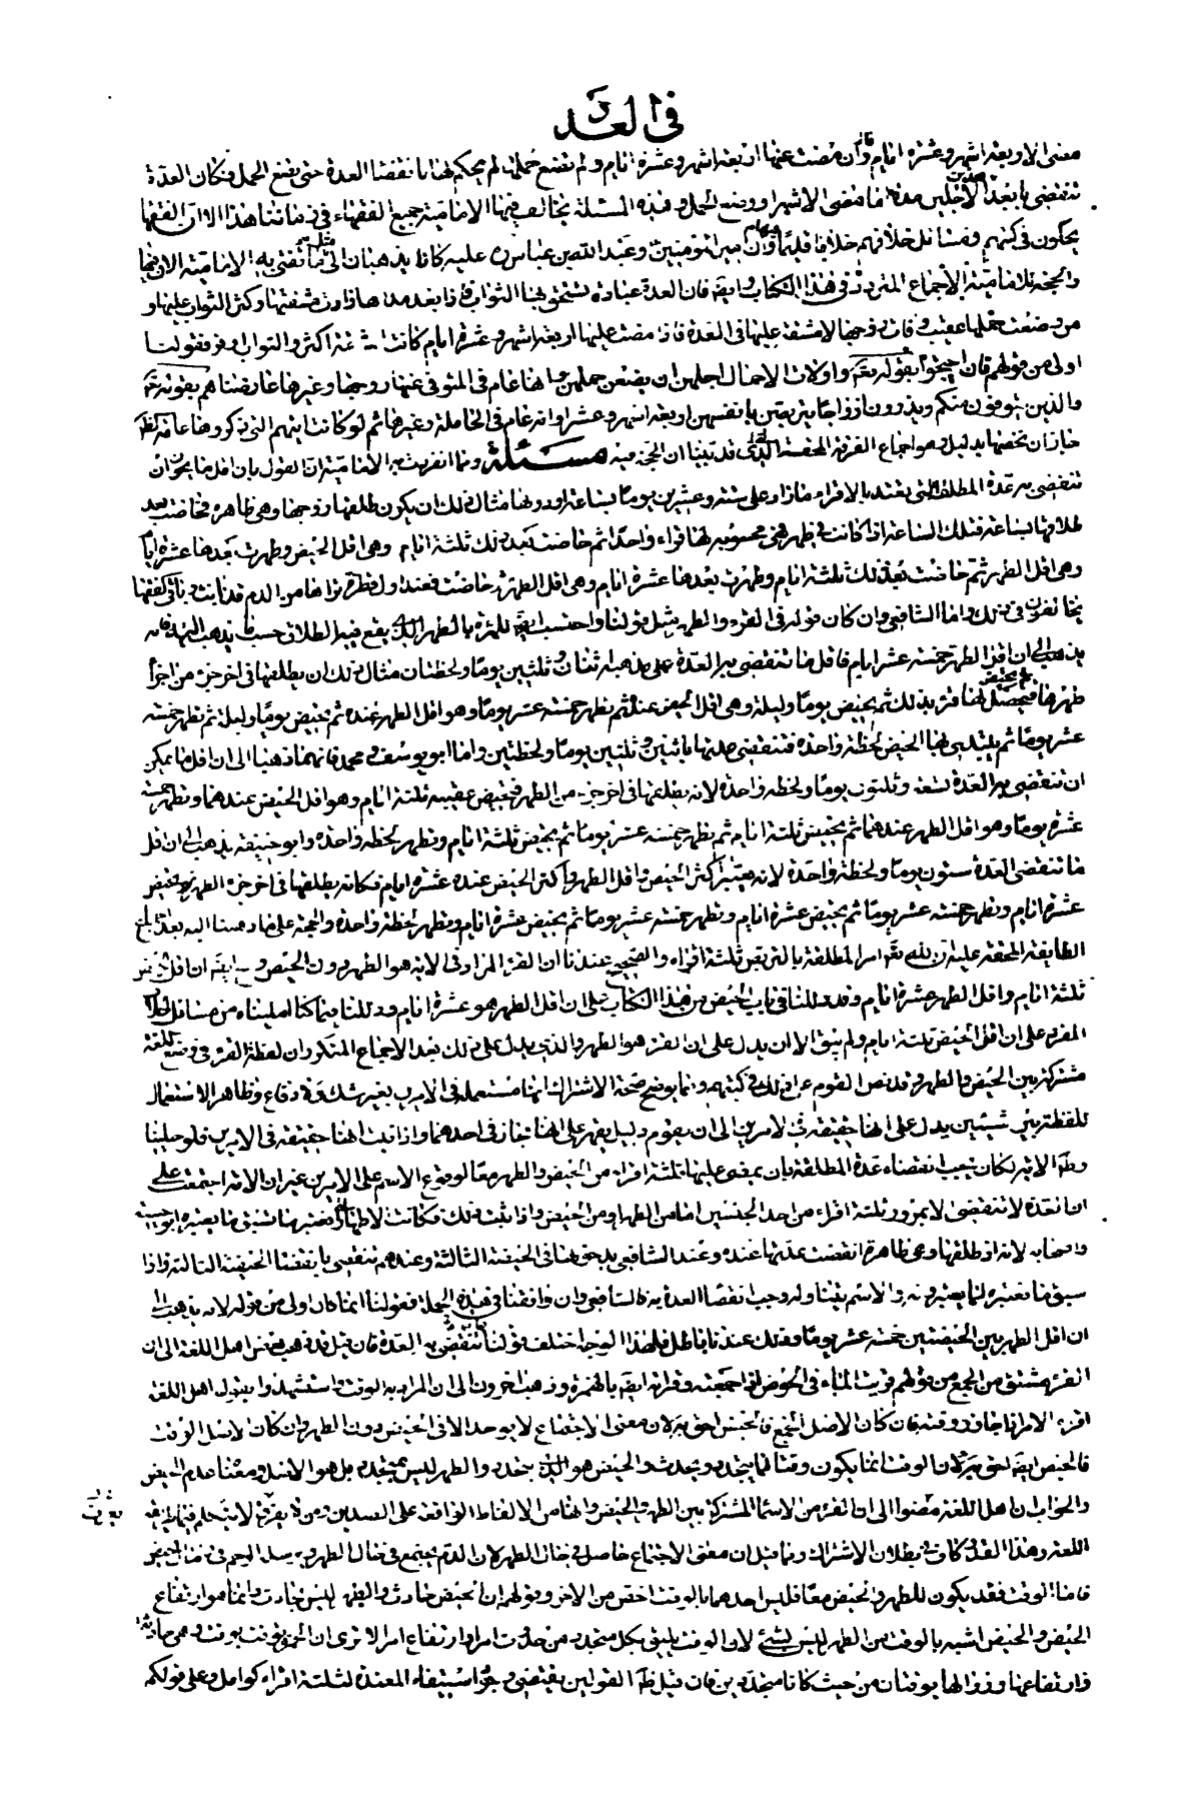 في العدد
معنى الاربعة اشهر وعشرة ايام وان مضت عنها اربعة اشهر وعشرة ايام ولم تضع حملها لم يحكم لها بانقضاء العدة حتى تضع الحمل فكان العدة
تنقضي بابعد الاجلين مدة اما مضي الاشهر او وضع الحمل وهذه المسئلة يخالف فيها الامامية جميع الفقهاء في زماننا هذا الا ان الفقهاء
يحكون في كتبهم ومسائل خلافهم خلافا قديما وان امير المؤمنين وعبد الله بن عباس كانا يذهبان الى مثل ما تفتي به الامامية الان فيها
والحجة للامامية الاجماع المتردد في هذا الكتاب وايضا فان العدة عبادة يستحق بها الثواب فاذا بعد مداها زادت مشقتها وكثر الثواب عليها و
من وضعت حملها عقيب وفات زوجها لا مشقة عليها في العدة فاذا مضت عليها اربعة اشهر وعشرة ايام كانت المشقة اكثر والثواب اوفر فقولنا
اولى من قولهم فان احتجوا بقوله تعالى واولات الاحمال اجلهن ان يضعن حملهن وانها عام في المتوفى عنها زوجها وغيرها عارضناهم بقوله تعالى
والذين يتوفون منكم ويذرون ازواجا يتربصن بانفسهن اربعة اشهر وعشرا وانه عام في الحاملة وغيرها ثم لو كانت ايتهم التي ذكروها عامة الظاهر
جاز ان نخصها بدليل وهو اجماع الفرقة المحقة الذي قد بينا ان الحجة فيه مسئلة ومما انفردت به الامامية ان القول بان اقل ما يجوز ان
تنقضي به عدة المطلقة التي تعتد بالاقراء ما زاد على ستة وعشرين يوما بساعة او دونها مثال ذلك ان يكون طلقها زوجها وهي طاهرة فحاضت بعد
طلاقها بساعة فتلك الساعة اذا كانت في طهر فهي محسوبة لها قرءا واحدا ثم حاضت بعد ذلك ثلثة ايام وهي اقل الحيض وطهرت بعدها عشرة ايام
وهي اقل الطهر ثم حاضت بعد ذلك ثلثة ايام وطهرت بعدها عشرة ايام وهي اقل الطهر ثم حاضت فعند اول قطرة تراها من الدم قد بانت وباقي الفقهاء
يخالفون في ذلك واما الشافعي وان كان قوله في القرء والطهر مثل قولنا واحتسب ايضا للمرءة بالطهر الذي يقع فيه الطلاق حسب ما نذهب اليه فانه
يذهب الى ان اقل الطهر خمسة عشر ايام فاقل ما تنقضي به العدة على مذهبه اثنان وثلثين يوما ولحظتان مثال ذلك ان يطلقها في اخر جزء من اجزاء
طهرها فيحصل لها قرء بذلك ثم يحيض يوما وليلة وهي اقل الحيض عنده ثم تطهر خمسة عشر يوما وهو اقل الطهر عنده ثم يحيض يوما وليلة ثم تطهر خمسة
عشر يوما ثم يبتدي بها الحيض لحظة واحدة فتنقضي عدتها باثنين وثلثين يوما ولحظتين واما ابو يوسف ومحمد فانهما ذهبا الى ان اقل ما يمكن
ان تنقضي به العدة تسعة وثلثون يوما ولحظة واحدة لانه يطلقها في اخر جزء من الطهر فتحيض عقيبه ثلثة ايام وهو اقل الحيض عندهما وتطهر خمسة
عشرة يوما وهو اقل الطهر عندهما ثم يحيض ثلثة ايام ثم تطهر خمسة عشر يوما ثم يحيض ثلثة ايام وتطهر لحظة واحدة وابو حنيفة يذهب الى ان اقل
ما تنقضي العدة ستون يوما ولحظة واحدة لانه يعتبر اكثر الحيض واقل الطهر واكثر الحيض عنده عشرة ايام فكانه يطلقها في اخر جزء الطهر ثم تحيض
عشرة ايام وتطهر خمسة عشر يوما ثم يحيض عشرة ايام وتطهر خمسة عشر يوما ثم يحيض عشرة ايام وتطهر لحظة واحدة والحجة على ما ذهبنا اليه بعد اجماع
الطايفة المحقة عليه ان الله تعالى امر المطلقة بالتربص ثلثة اقراء والصحيح عندنا ان القرء المراد في الاية هو الطهر دون الحيض وايضا ان اقل الحيض
ثلثة ايام واقل الطهر عشرة ايام وقد دللنا في باب الحيض من هذا الكتاب على ان اقل الطهر هو عشرة ايام ودللنا فيما كنا امليناه من مسائل الخلاف
المفردة على ان اقل الحيض ثلثة ايام ولم يبق الا ان يدل على ان القرء هو الطهر والذي يدل على ذلك بعد الاجماع المتكرر ان لفظة القرء في وضع اللغة
مشتركة بين الحيض والطهر وقد نص القوم على ذلك في كتبهم ومما يوضح صحة الاشتراك انها مستعملة في الامرين بغير شك ولا دفاع وظاهر الاستعمال
للفظة بين شيئين يدل على انها حقيقة في الامرين الى ان يقوم دليل يقهر على انها مجاز في احدهما واذا ثبت انها حقيقة في الامرين فلو خلينا
وظاهر الاية لكان يجب انقضاء عدة المطلقة بان يمضي عليها ثلثة اقراء من الحيض والطهر معا لوقوع الاسم على الامرين غير ان الامة اجتمعت على
ان العدة لا تنقضي الا بمرور ثلثة اقراء من احد الجنسين اما من الطهر او من الحيض واذا ثبت ذلك فكانت الاطهار التي نعتبرها تسبق ما يعتبره ابو حنيفة
واصحابه لانه اذا طلقها وهي طاهرة انقضت عدتها عنده وعند الشافعي بدخولها في الحيضة الثالثة وعندهم تنقضي بانقضاء الحيضة الثالثة واذا
سبق ما نعتبره لما يعتبرونه والاسم يتناوله وجب انقضاء العدة به فالشافعي وان وافقنا في هذه الجملة فقولنا انما كان اولى من قوله لانه يذهب الى
ان اقل الطهر بين الحيضتين خمسة عشر يوما وذلك عندنا باطل فلهذا الوجه اختلف قولنا فيما تنقضي به العدة فان قيل قد ذهب بعض اهل اللغة الى ان
القرء مشتق من الجمع من قولهم قريت الماء في الحوض اذا جمعته وقراته ايضا بالهمزة وذهب اخرون الى ان المراد به الوقت واستشهدوا بقول اهل اللغة
اقرء الامر اذا حان وقته فان كان الاصل الجمع فالحيض احق به لان معنى الاجتماع لا يوجد الا في الحيض دون الطهر وان كان الاصل الوقت
فالحيض ايضا احق به لان الوقت انما يكون وقتا لما يتجدد ويحدث والحيض هو الذي يتجدد والطهر ليس بمتجدد بل هو الاصل ومعناه عدم الحيض
والجواب ان اهل اللغة نصوا الى ان القرء من الاسماء المشتركة بين الطهر والحيض وانها من الالفاظ الواقعة على الضدين ومن لا يعرف ذلك لا يتكلم فيما طريقه
اللغة وهذا القدر كاف في بطلان الاشتراك ومما قيل ان معنى الاجتماع حاصل في حال الطهر لان الدم يجتمع في حال الطهر ويرسله الرحم في زمان الحيض
فاما الوقت فقد يكون للطهر والحيض معا فليس احدهما بالوقت اخص من الاخر وقولهم ان الحيض حادث والطهر ليس بحادث وانما هو ارتفاع
الحيض والحيض اشبه بالوقت من الطهر ليس بشيء لان الوقت يليق بكل متجدد من حدوث امر او ارتفاع امر الا ترى ان الحمى توقت بوقت وهي حادثة
وارتفاعها وزوالها يوقتان من حيث كانا متجددين فان قيل ظاهر القولين يقتضي وجوب استيفاء المعتدة لثلثة اقراء كوامل وعلى قولكم